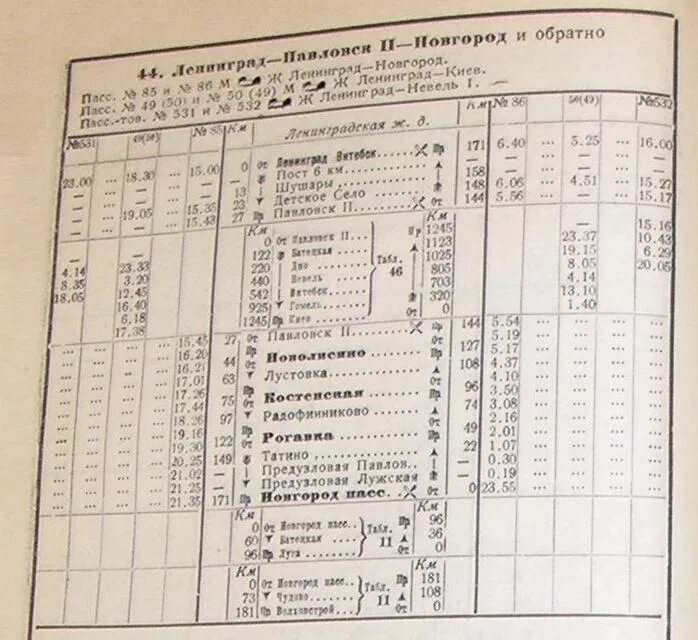 44. Ленинград—Павловск II—Новгород и обратно
Пасс. № 85 и № 86 М Ж Ленинград—Новгород.
Пасс. № 49 (50) и № 50 (49) М Ж Ленинград—Киев.
Пасс.-тов. № 531 и № 532 Ж Ленинград—Невель I. —
№531 49(50) №85 Км Ленинградская ж. д. Км №86 50(49) №532
23.00 ... 18.30 ... 15.00 0 От Ленинград Витебск. Пр 171 6.40 ... 5.25 ... 16.00
— — — — Пост 6 км — — — —
— — — 13 Шушары 158 — — —
— — 15.35 23 Детское Село 148 6.06 ... 4.51 ... 15.27
— ... 19.05 ... 15.43 27 Пр Павловск II От 144 5.56 ... — ... 15.17
Км Км
— — 0 От Павловск II Пр 1245 — 15.16
— — 122 Батецкая 1123 23.37 10.43
4.14 23.33 220 Дно Табл. 1025 19.15 6.29
8.35 3.20 440 Невель 46 805 8.05 20.05
18.05 12.45 542 Витебск 703 4.14
16.40 925 Гомель 320 13.10
6.18 1245 Пр Киев От 0 1.40
17.38
... ... ... ... 15.45 27 От Павловск II Пр 144 5.54 ... ... ... ...
16.20 Пр Новолисино От 5.19
16.21 44 От Пр 127 5.17
17.01 63 Лустовка 108 4.37
17.26 Пр Костенская От 4.10
17.44 75 От Пр 96 3.50
18.26 97 Радофинниково 74 3.08
19.16 Пр Рогавка От 2.16
19.30 122 От Пр 49 2.01
20.25 149 Татино 22 1.07
21.02 — Предузловая Павлов. — 0.30
21.25 — Предузловая Лужская — 0.19
21.35 171 Пр Новгород пасс. От 0 23.55
Км Км
0 От Новгород пасс. Табл. Пр 96
60 Батецкая 11 36
96 Пр Луга От 0
Км Км
0 От Новгород пасс. Табл. Пр 181
73 Чудово 11 108
181 Пр Волховстрой От 0